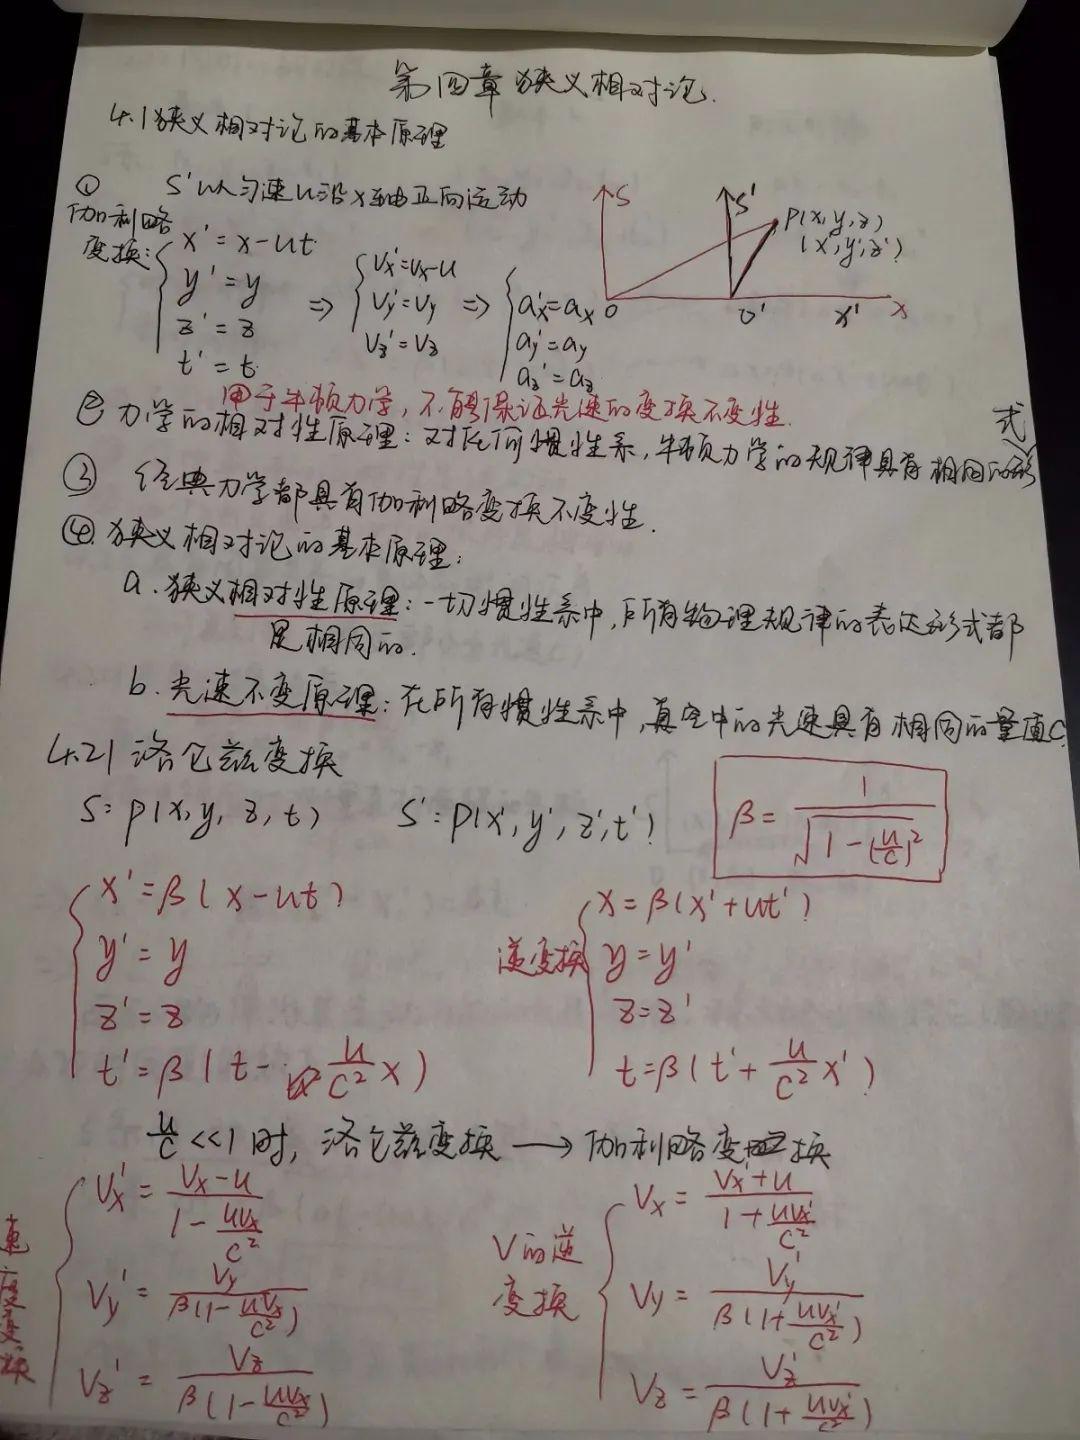 第四章 狭义相对论.
4.1 狭义相对论的基本原理
① S'以匀速u沿x轴正向运动
伽利略变换:
x' = x - ut
y' = y
z' = z
t' = t
⇒
Vx' = Vx - u
Vy' = Vy
Vz' = Vz
⇒
ax' = ax
ay' = ay
az' = az
S S' P(x, y, z)
(x', y', z')
O O' x' x
用于牛顿力学, 不能保证光速的变换不变性.
② 力学的相对性原理: 对任何惯性系, 牛顿力学的规律具有相同的形式
③ 经典力学都具有伽利略变换不变性.
④ 狭义相对论的基本原理:
a. 狭义相对性原理: 一切惯性系中, 所有物理规律的表达形式都
是相同的.
b. 光速不变原理: 在所有惯性系中, 真空中的光速具有相同的量值c.
4.2 洛仑兹变换
S: P(x, y, z, t) S': P(x', y', z', t')
β = 1/√(1 - (u/c)²)
x' = β(x - ut)
y' = y
z' = z
t' = β(t - u/c² x)
逆变换
x = β(x' + ut')
y = y'
z = z'
t = β(t' + u/c² x')
u/c << 1时, 洛仑兹变换 → 伽利略变换
速度变换
Vx' = (Vx - u)/(1 - uVx/c²)
Vy' = Vy/(β(1 - uVx/c²))
Vz' = Vz/(β(1 - uVx/c²))
V的逆
变换
Vx = (Vx' + u)/(1 + uVx'/c²)
Vy = Vy'/(β(1 + uVx'/c²))
Vz = Vz'/(β(1 + uVx'/c²))